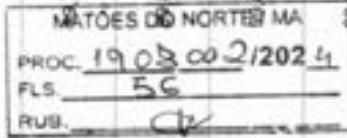 MATÕES DO NORTE MA
PROC. 1903002/2024
FLS. 56
RUB.